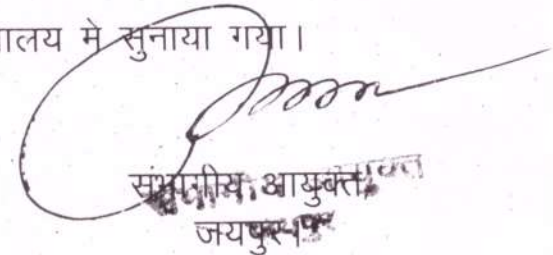 ालय मे सुनाया गया।
संभागीय आयुक्त
जयपुर